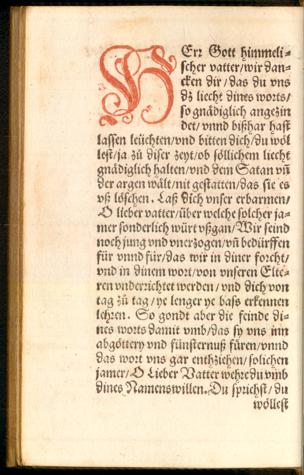 HErr Gott himmeli-
scher vatter/wir dan-
cken dir/das du vns
dz liecht dines worts/
so gnädiglich angezün
det/vnnd bißhar hast
lassen leüchten/vnd bitten dich/du wöl
lest/ja zů diser zeyt/ob söllichem liecht
gnädiglich halten/vnd dem Satan vñ
der argen wält/nit gestatten/das sie es
vß löschen. Laß dich vnser erbarmen/
O lieber vatter/über welche solcher ja-
mer sonderlich würt vßgan/Wir seind
noch jung vnd vnerzogen/vñ bedürffen
für vnnd für/das wir in diner forcht/
vnd in dinem wort/von vnseren Elte-
ren vnderrichtet werden/vnd dich von
tag zů tag/ye lenger ye baß erkennen
lehren. So gondt aber die feinde di-
nes worts damit vmb/das sy vns inn
abgöttery vnd fünsternuß füren/vnnd
das wort vns gar enthziehen/solichen
jamer/O Lieber Vatter wehre du vmb
dines Namenswillen. Du sprichst/du
wöllest